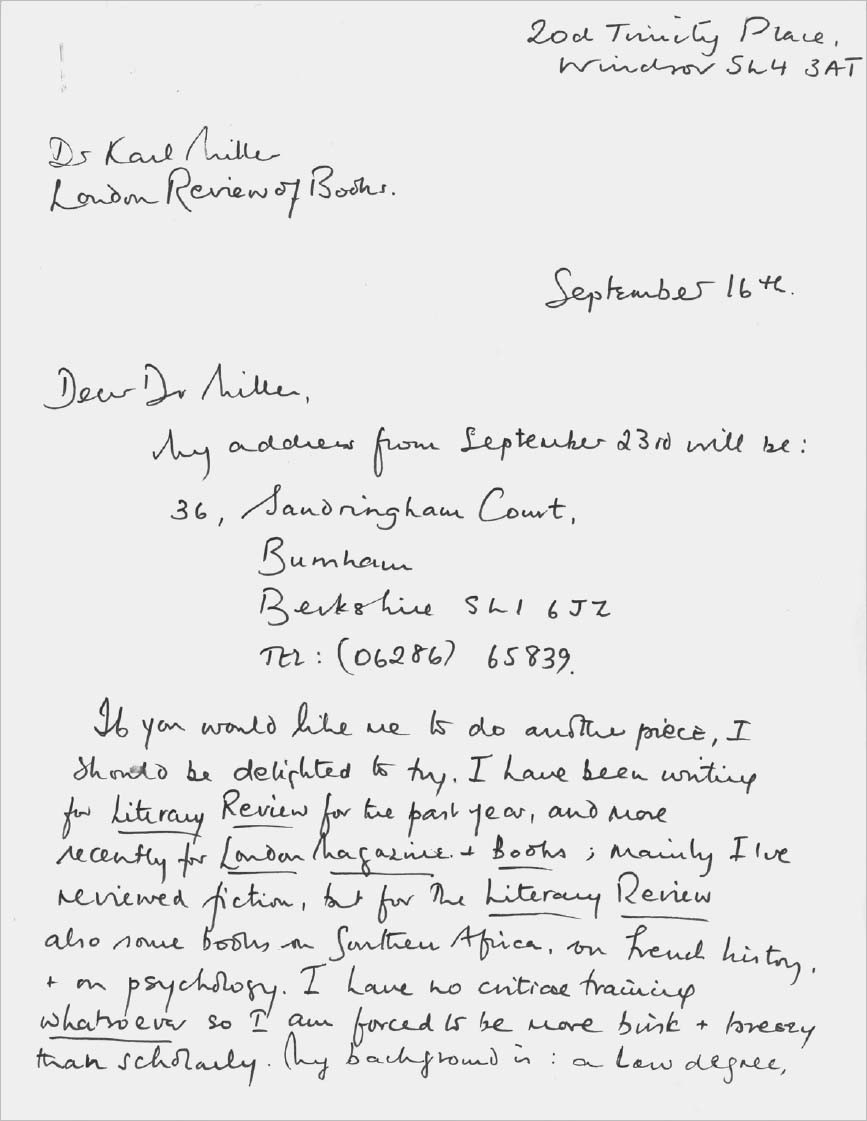 20d Trinity Place,
Windsor SL4 3AT
Dr Karl Miller
London Review of Books.
September 16th.
Dear Dr Miller,
My address from September 23rd will be:
36, Sandringham Court,
Burnham
Berkshire SL1 6JZ
TEL: (06286) 65839.
If you would like me to do another piece, I
should be delighted to try. I have been writing
for Literary Review for the past year, and more
recently for London Magazine + Books; mainly I've
reviewed fiction, but for the Literary Review
also some books on Southern Africa, on French history,
+ on psychology. I have no critical training
whatsoever so I am forced to be more brisk + breezy
than scholarly. My background is: a law degree,